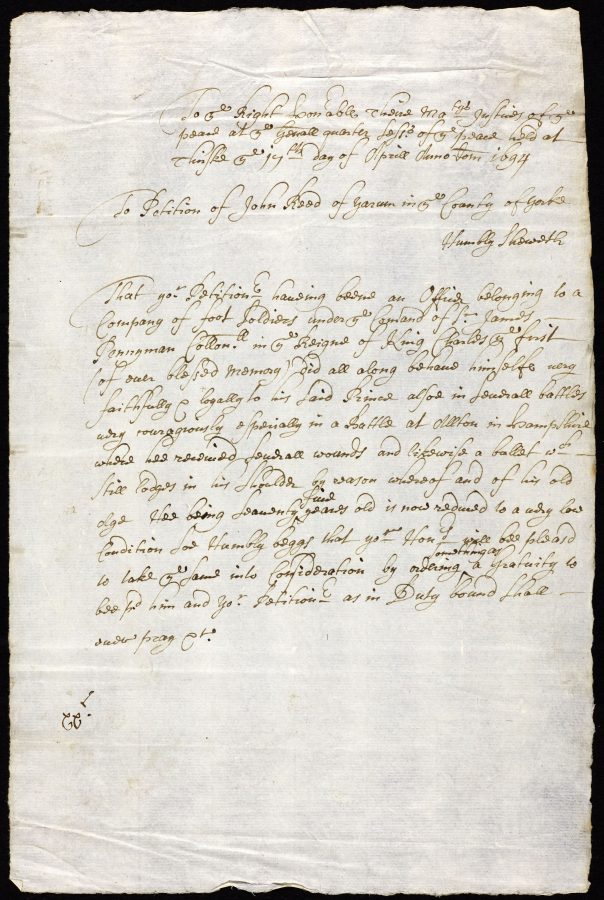 To ye Right honable Theire Matys Justices of ye
peace at ye Genall quarter Sess:s of ye peace held at
Thirske ye 17th day of Aprill Anno Dom 1694
To Petition of John Reed of Yarum in ye County of Yorke
Humbly Sheweth
That yor Petitionr haueing beene an Officer belonging to a
Company of foot Soldiers under ye Comand of Sr James
Pennyman Collonll in ye Reigne of King Charles ye first
(of ever blessed memory) did all along behave himselfe very
faithfully & loyally to his said Prince alsoe in Severall battles
very couragiously especially in a Battle at Allton in Hampshire
where hee received severall wounds and likewise a bullet wch
still lodges in his shoulder by reason whereof and of his old
Age Hee being Seaventy five yeares old is now reduced to a very low
Condition Soe Humbly beggs that yor Honrs will bee pleasd
to take ye same into Consideration by ordering something as a Gratuity to
bee pd him and yor Petitionr as in Duty bound shall
ever pray &tc
xxs